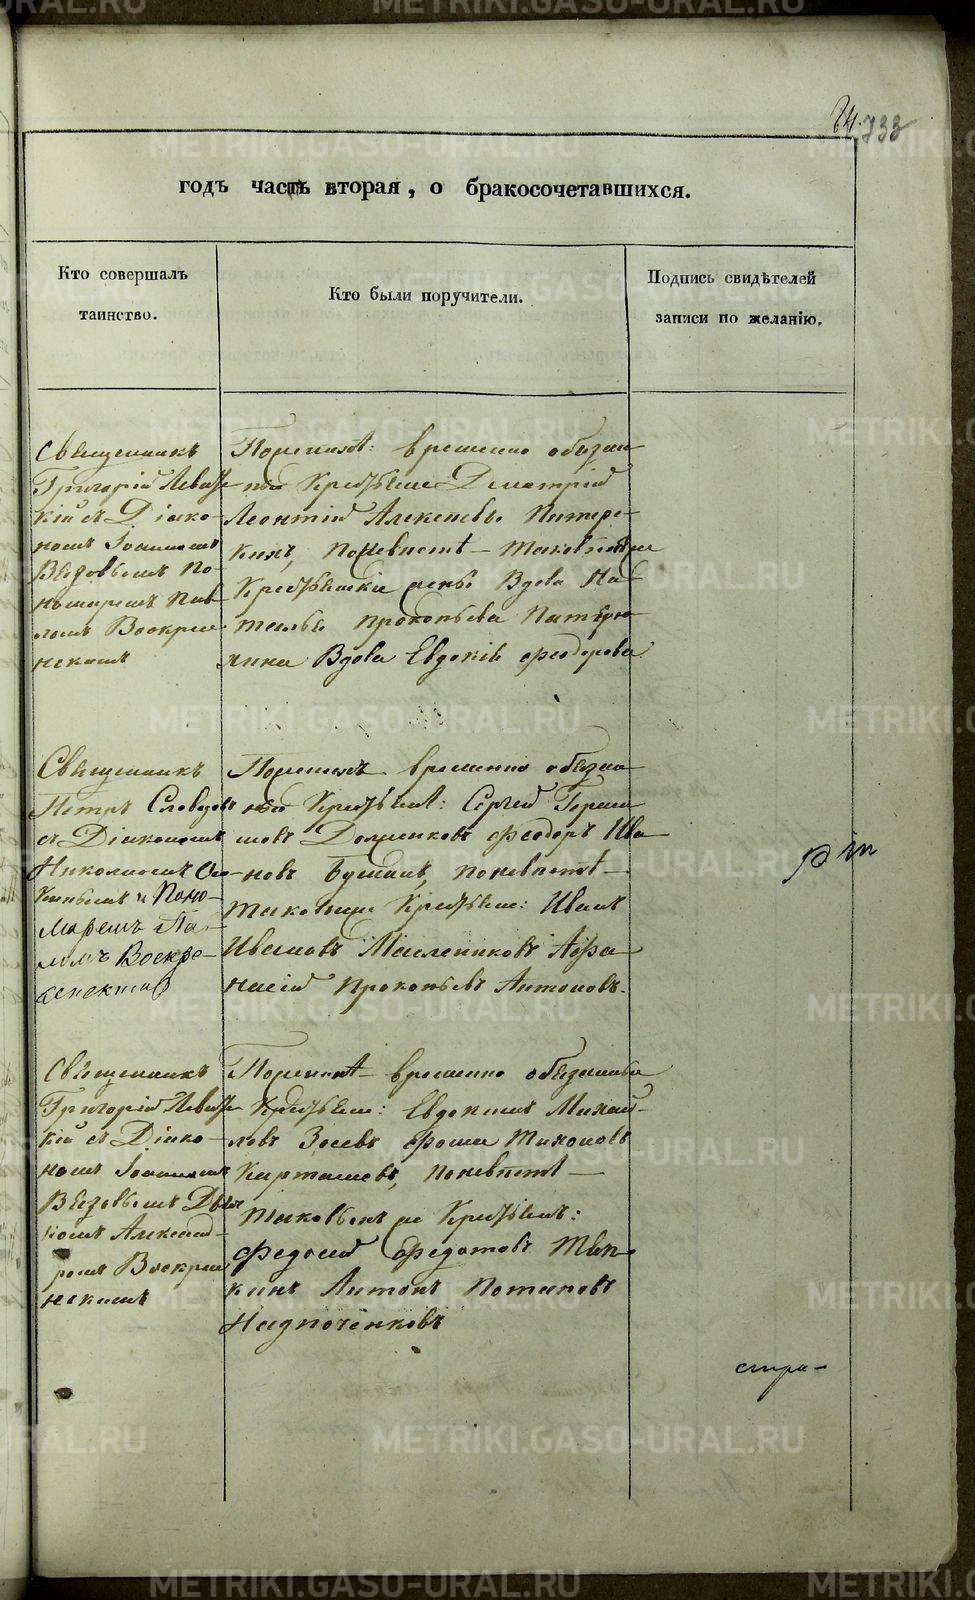 733
годъ часть вторая, о бракосочетавшихся.
Кто совершалъ
таинство.
Кто были поручители.
Подпись свидѣтелей
записи по желанію.
Священникъ
Григорій Левиц
кій съ Діако-
номъ Іоанномъ
По-
номаремъ Пав
ломъ Воскресе
нскимъ
По женихѣ: временно обязан
ные Крестьяне Дмитрій
Леонтій Алексѣевъ Питере-
кинъ, по невѣстѣ – таковые же
Крестьянскія жены Вдова На
талья Прокопьева
Вдова Евдокія Феодорова
Священникъ
Петръ Словцовъ
съ Діакономъ
Николаемъ
и Поно-
маремъ Па-
ломъ Воскре-
сенскимъ
По женихѣ временно обязан
ные Крестьяне: Сергей Гераси
мовъ Долженковъ Феодоръ Ива
новъ по невѣстѣ –
таковые же Крестьяне: Иванъ
Ивановъ Маслениковъ Афа
насій Прокопьевъ Антоновъ.
Священникъ
Григорій Левиц
кій съ Діако-
номъ Іоанномъ
Дья
комъ Александ-
ромъ Воскресе
нскимъ
По женихѣ – временно обязанные
Крестьяне: Евдокимъ Михай-
ловъ Зуевъ Фома Тихоновъ
Карташевъ, по невѣстѣ –
таковые же Крестьяне:
Федосей Федотовъ Тяп
кинъ Антонъ Потаповъ
Надпоченковъ
METRIKI.GASO-URAL.RU